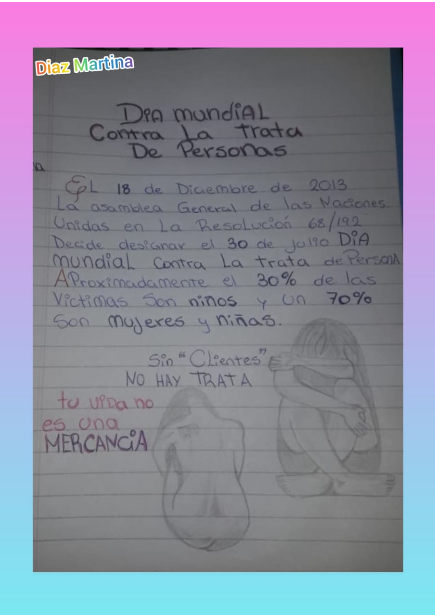 Diaz Martina
DIA mundiAL
Contra La trata
De Personas
EL 18 de Diciembre de 2013
La asamblea General de las Naciones
Unidas en La Resolución 68/192
Decide designar el 30 de julio DÍA
mundiaL Contra La trata de PersonA
AProximadamente el 30% de las
Victimas Son niños y un 70%
Son mujeres y niñas.
Sin "CLientes"
NO HAY TRATA
tu vida no
es una
MERCANCíA